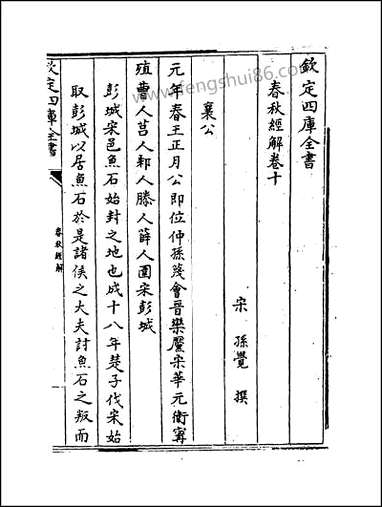 欽定四庫全書
春秋經解卷十
宋 孫覺 撰
襄公
元年春王正月公即位仲孫蔑會晉欒黶宋華元衛甯
殖曹人莒人邾人滕人薛人圍宋彭城
彭城宋邑魚石始封之地也成十八年楚子伐宋始
取彭城以居魚石於是諸侯之大夫討魚石之叛而
欽定四庫全書
春秋經解
一
www.fengshui86.com